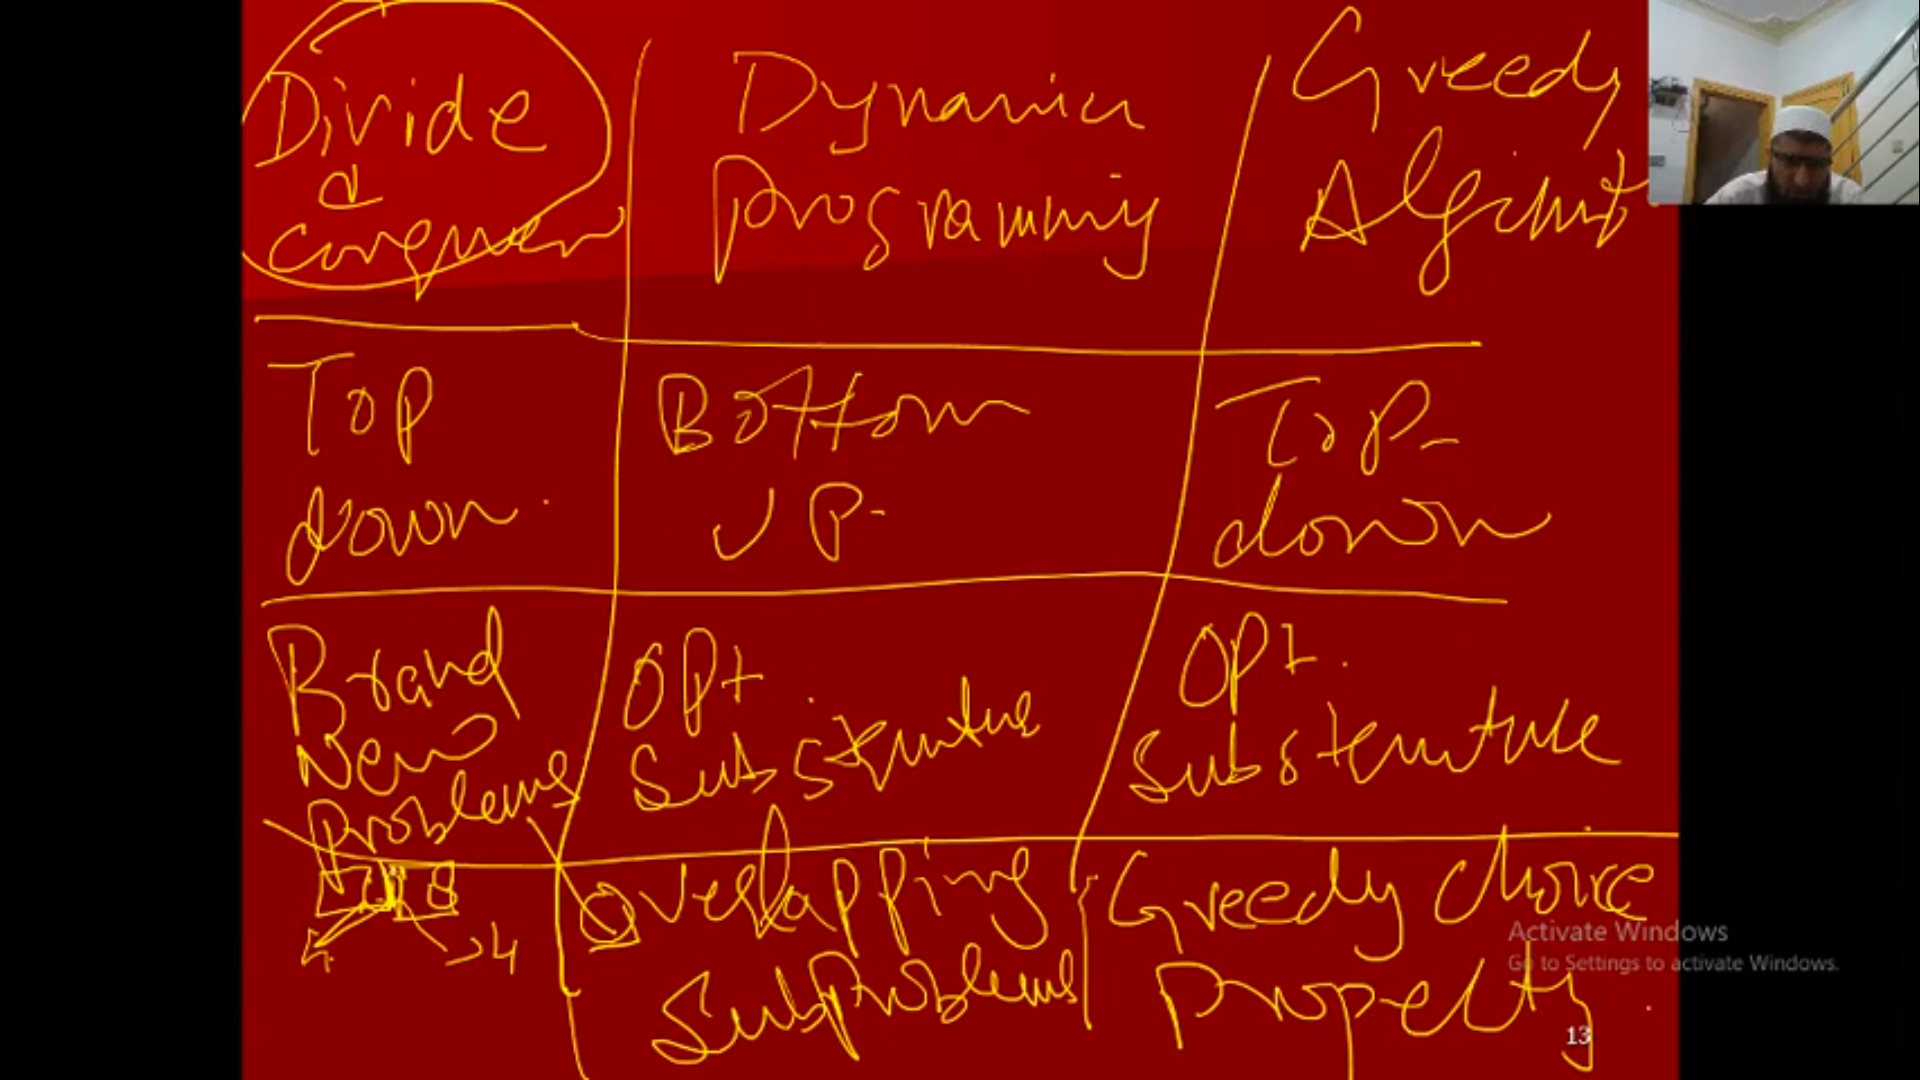 Divide
&
conquer
Dynamic
Programming
Greedy
Algorithm
Top
down.
Bottom
UP-
Top-
down
Brand
New
Problems
8
4
4
Opt
Substructure
Opt.
Substructure
Overlapping
Subproblems
Greedy choice
Property.
Activate Windows
Go to Settings to activate Windows.
13